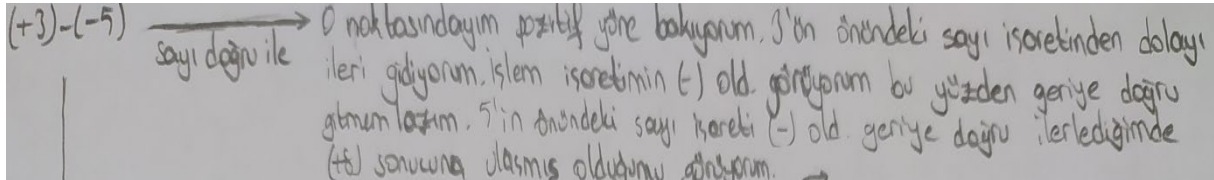 (+3)-(-5) sayı doğru ile 0 noktasındayım pozitif yöne bakıyorum. 3'ün önündeki sayı işaretinden dolayı
ileri gidiyorum. İşlem işaretimin (-) old. görüyorum bu yüzden geriye doğru
gitmem lazım. 5'in önündeki sayı işareti (-) old. geriye doğru ilerlediğimde
(+8) sonucuna ulaşmış olduğumu görüyorum.